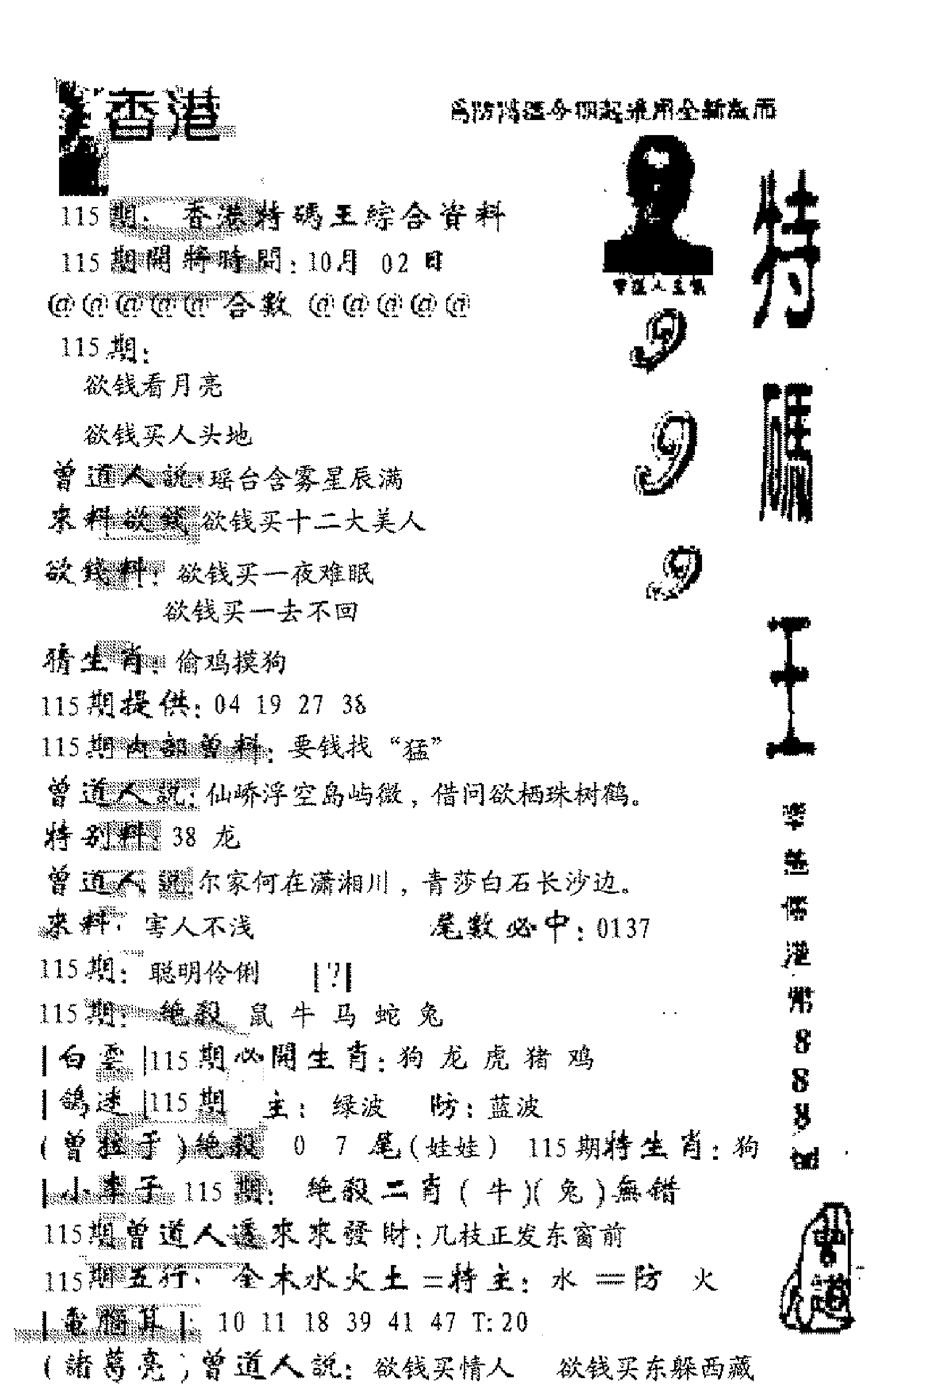 香港
為防偽從今期起采用全新版面
115期: 香港特碼王綜合資料
115期開將時間:10月 02日
@@@@@合數 @@@@@
115期:
欲钱看月亮
欲钱买人头地
曾道人說:瑶台含雾星辰满
來料欲錢 欲钱买十二大美人
欲錢料: 欲钱买一夜难眠
欲钱买一去不回
猜生肖: 偷鸡摸狗
115期提供: 04 19 27 38
115期內部曾料: 要钱找“猛”
曾道人說: 仙峤浮空岛屿微，借问欲栖珠树鹤。
特别料: 38 龙
曾道人說 尔家何在潇湘川，青莎白石长沙边。
來料: 害人不浅 尾數必中: 0137
115期: 聪明伶俐 |?|
115期: 绝殺 鼠 牛 马 蛇 兔
|白雲|115期必開生肖: 狗 龙 虎 猪 鸡
|鴿迷|115期 主: 绿波 防: 蓝波
(曾拉于)绝殺 0 7 尾(娃娃) 115期特生肖: 狗
|小李子 115期: 绝殺二肖(牛)(兔)無错
115期曾道人透來來發財: 几枝正发东窗前
115期五行: 金木水火土=特主: 水 =防 火
|電腦算|: 10 11 18 39 41 47 T:20
(諸葛亮)曾道人說: 欲钱买情人 欲钱买东躲西藏
曾道人主俱
9
9
9
特
碼
王
港
幣
8
8
8
曾道